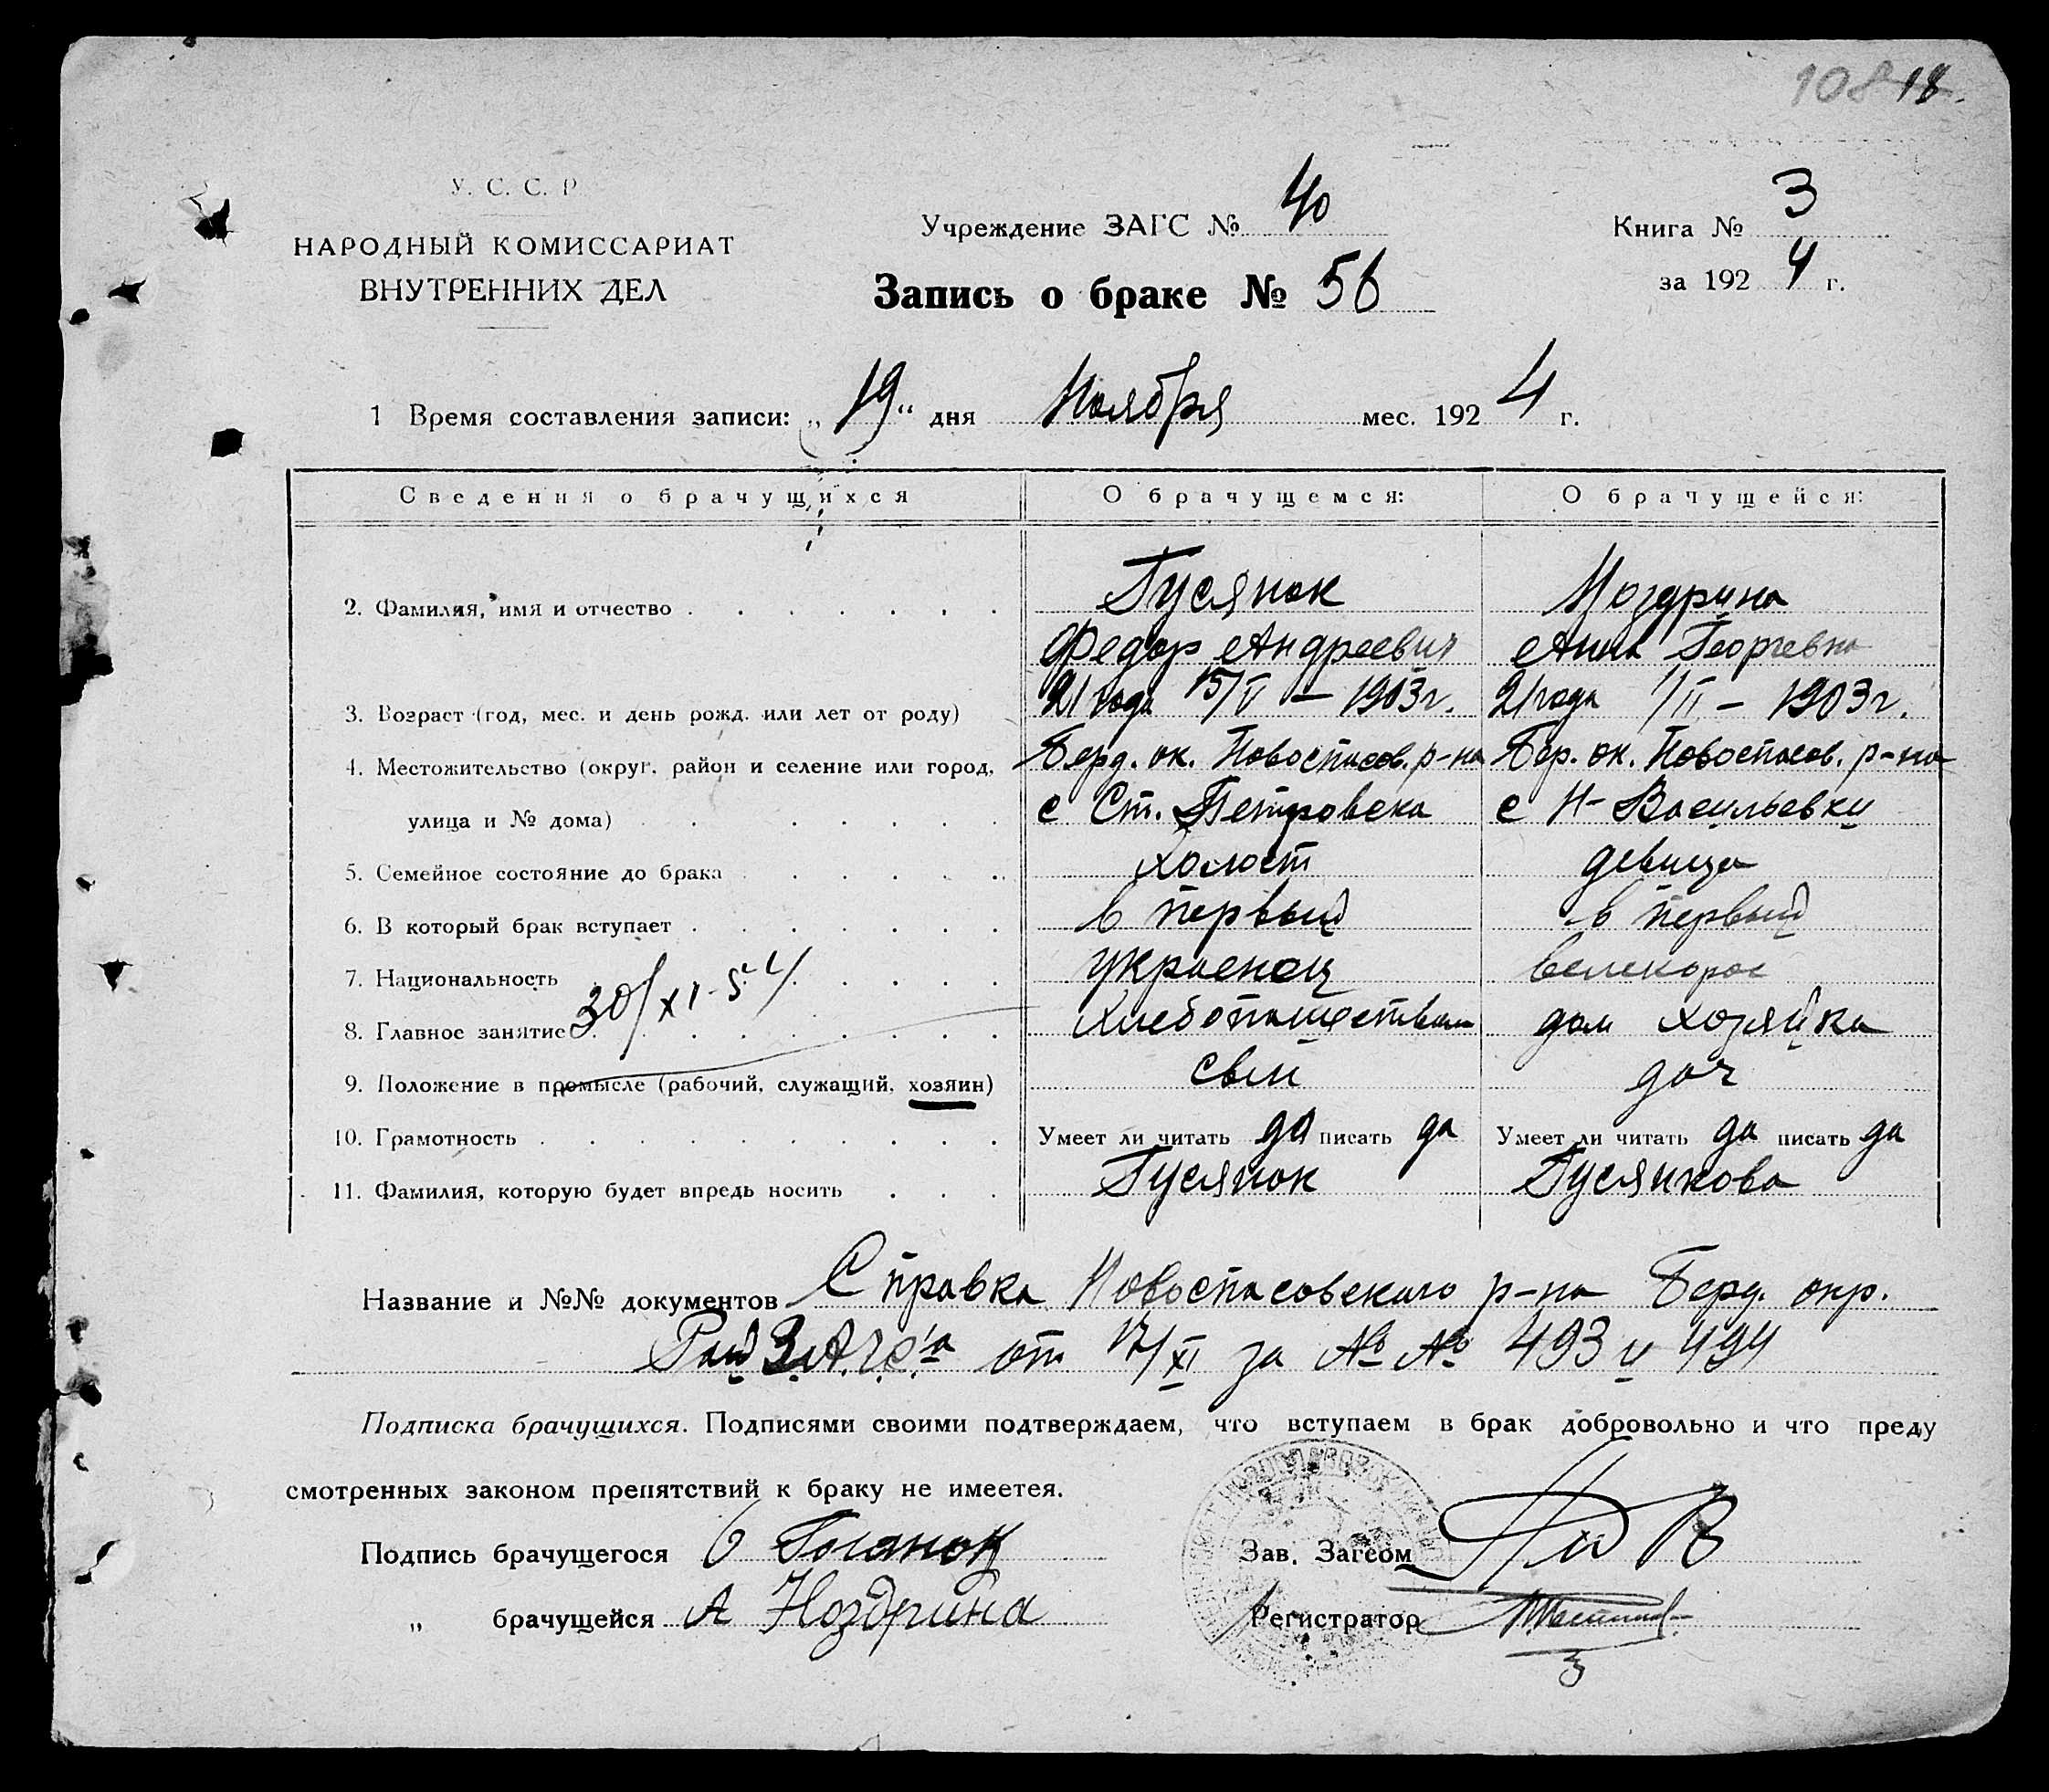 108 18.
У. С. С. Р
НАРОДНЫЙ КОМИССАРИАТ
ВНУТРЕННИХ ДЕЛ
Учреждение ЗАГС № 40
Книга № 3
Запись о браке № 56
за 1924 г.
1 Время составления записи: „19“ дня Ноября мес. 1924 г.
Сведения о брачущихся О брачущемся: О брачущейся:
2. Фамилия, имя и отчество Гусянок Ноздрина
Федор Андреевич Анна Георгевна
3. Возраст (год, мес. и день рожд. или лет от роду) 21 года 15/II — 1903 г. 21 года 1/II — 1903 г.
4. Местожительство (округ, район и селение или город, Берд. ок. Новоспасов. р-на Бер. ок. Новоспасов. р-на
улица и № дома) с Ст. Петровска с Н-Васильевки
5. Семейное состояние до брака холост девица
6. В который брак вступает в первый в первый
7. Национальность украенец велекорос
30/XI-54
8. Главное занятие Хлебопашеством дом хозяйка
9. Положение в промысле (рабочий, служащий, хозяин) сын доч
10. Грамотность Умеет ли читать да писать да Умеет ли читать да писать да
11. Фамилия, которую будет впредь носить Гусянок Гусянкова
Название и №№ документов Справка Новоспасовского р-на Берд. окр.
Рай З.А.Г.С.'а от 17/XI за №№ 493 и 494
Подписка брачущихся. Подписями своими подтверждаем, что вступаем в брак добровольно и что преду
смотренных законом препятствий к браку не имеетея.
Подпись брачущегося
Зав. Загсом
„ брачущейся А Ноздрина
Регистратор